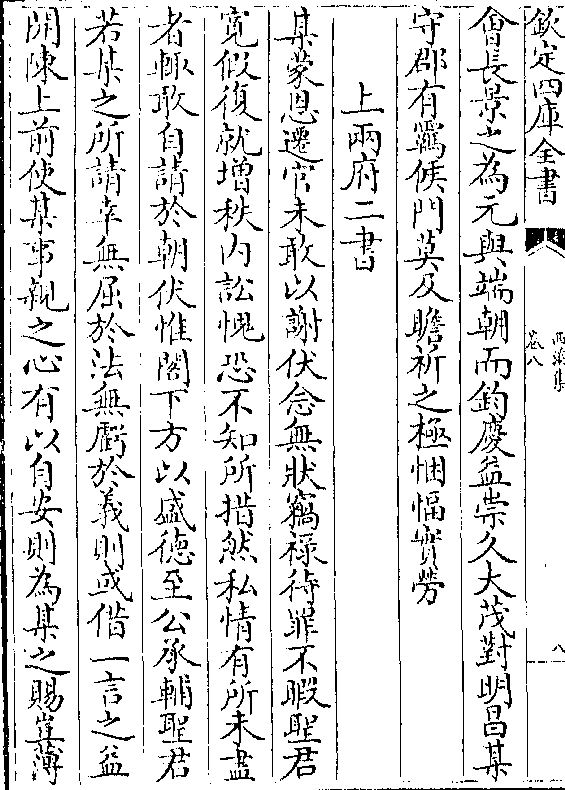 欽定四庫全書
西溪集
卷八
八
會長景之為元與端朝而鈞慶益崇久大茂對明昌某
守郡有羈候門莫及瞻祈之極悃愊實勞
上兩府二書
某蒙恩遷官未敢以謝伏念無狀竊祿待罪不暇聖君
寛假復就增秩内訟愧恐不知所措然私情有所未盡
者輙敢自請於朝伏惟閤下方以盛德至公承輔聖君
若某之所請幸無屈於法無虧於義則或借一言之益
開陳上前使某事親之心有以自安則為某之賜豈薄